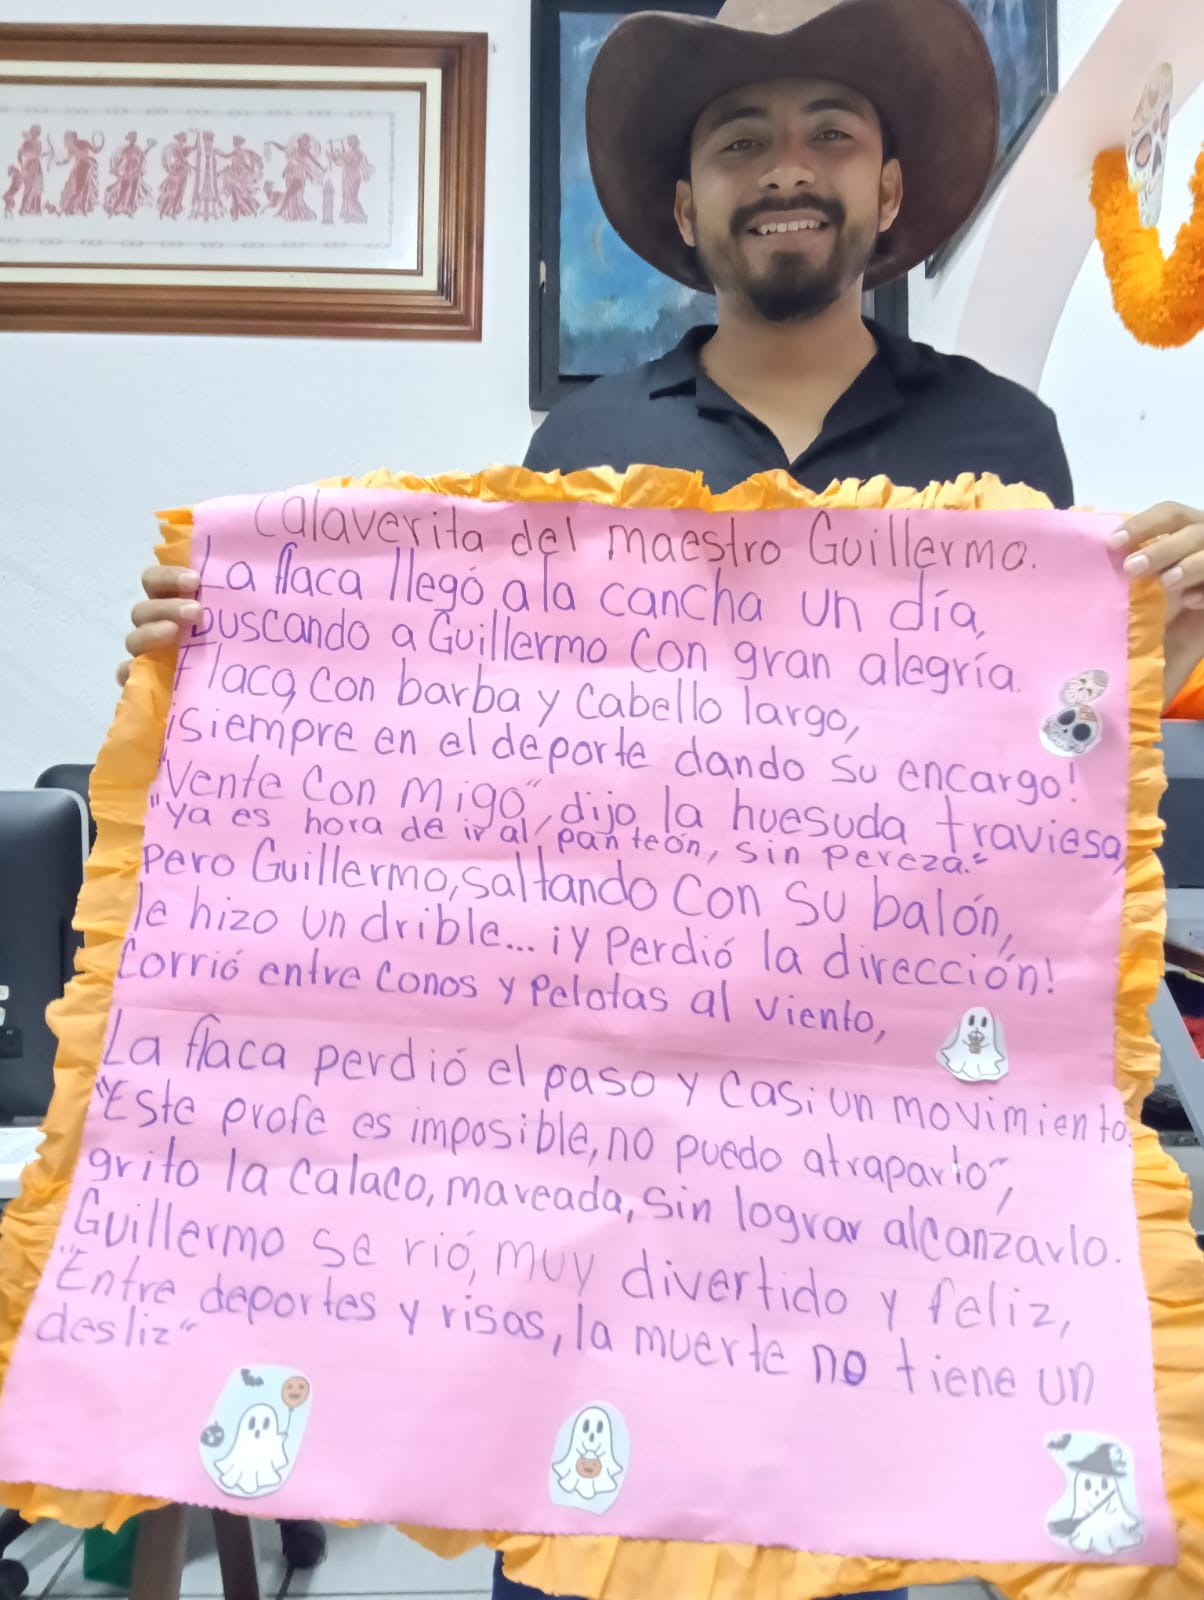 Calaverita del maestro Guillermo.
La flaca llegó a la cancha un día,
buscando a Guillermo con gran alegría.
Flaca, con barba y cabello largo,
¡siempre en el deporte dando su encargo!
"Vente con migo", dijo la huesuda traviesa,
"ya es hora de ir al panteón, sin pereza."
Pero Guillermo, saltando con su balón,
le hizo un drible... ¡y perdió la dirección!
Corrió entre conos y pelotas al viento,
La flaca perdió el paso y casi un movimiento.
"Este profe es imposible, no puedo atraparlo",
grito la calaca, mareada, sin lograr alcanzarlo.
Guillermo se rió, muy divertido y feliz,
"Entre deportes y risas, la muerte no tiene un
desliz"